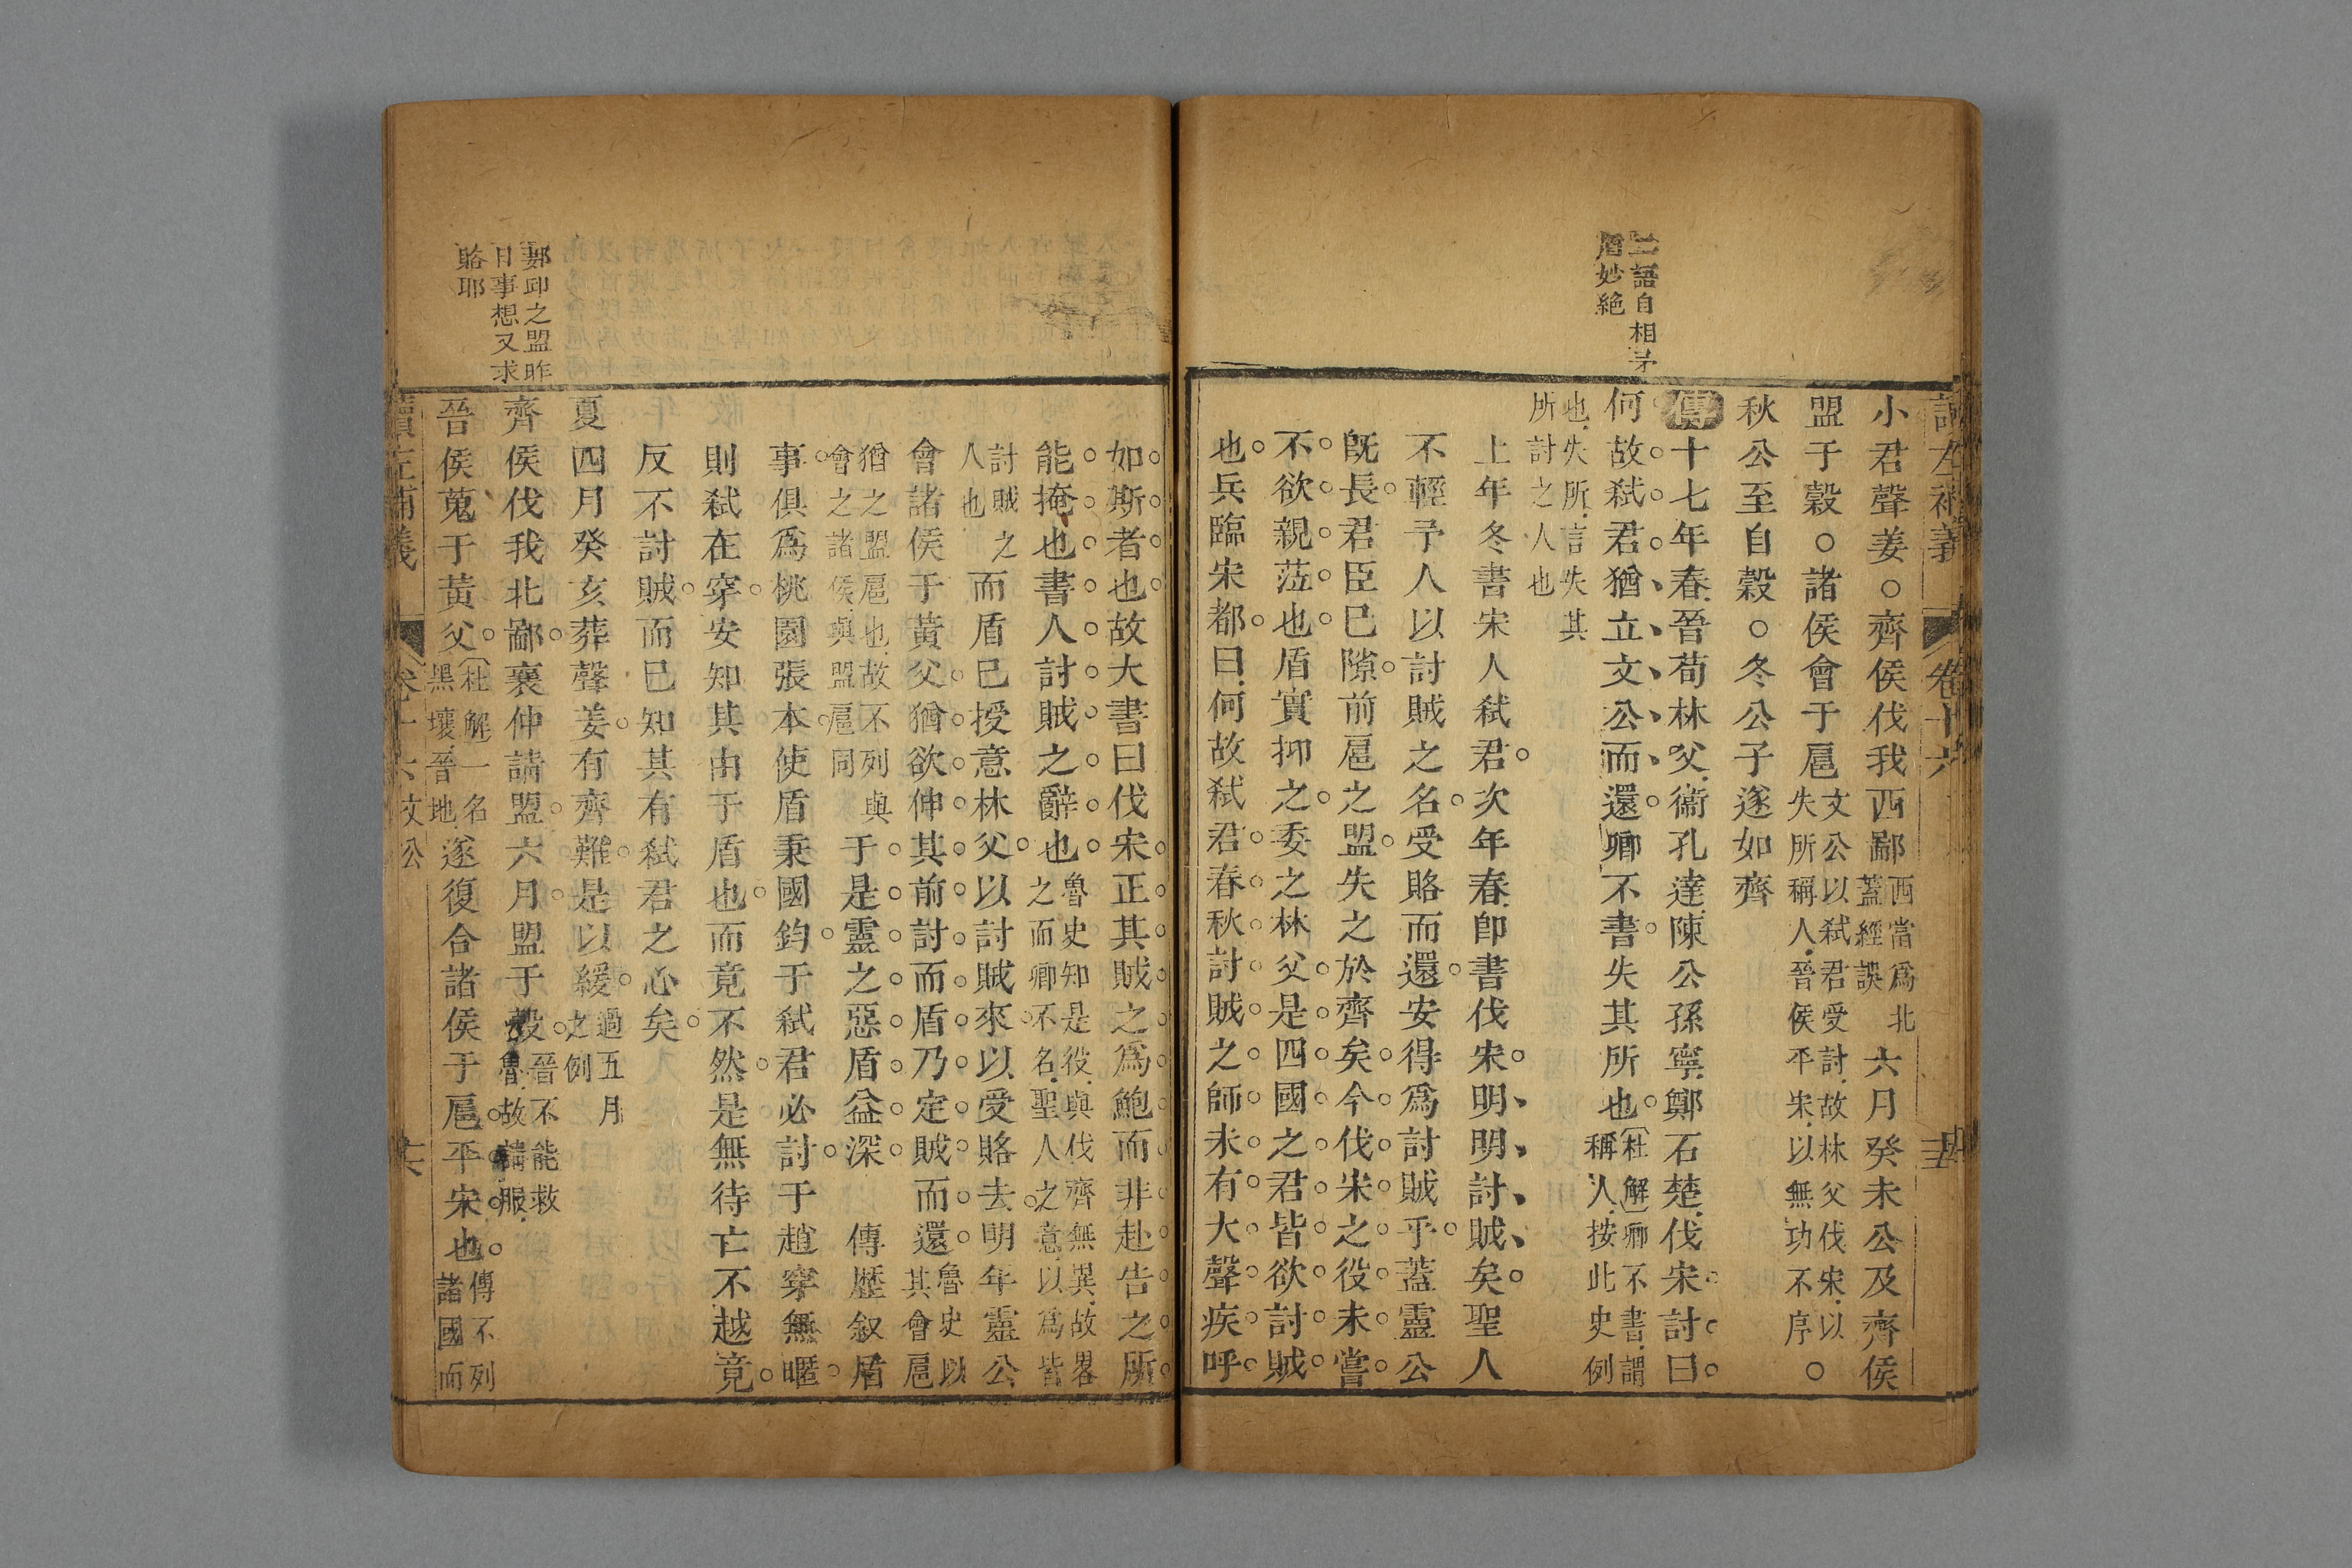 讀左補義
卷十六
二語自相矛
盾妙絶
小君聲姜○齊侯伐我西鄙西當爲北蓋經誤六月癸未公及齊侯
盟于穀○諸侯會于扈文公以弑君受討故林父伐宋以失所稱人晉侯平宋以無功不序○
秋公至自穀○冬公子遂如齊
傳十七年春晉荀林父衞孔達陳公孫寧鄭石楚伐宋討曰
何故弑君猶立文公而還卿不書失其所也杜解卿不書謂稱人按此史例
也失所言失其所討之人也
上年冬書宋人弑君次年春卽書伐宋明明討賊矣聖人
不輕予人以討賊之名受賂而還安得爲討賊乎蓋靈公
旣長君臣已隙前扈之盟失之於齊矣今伐宋之役未嘗
不欲親蒞也盾實抑之委之林父是四國之君皆欲討賊
也兵臨宋都曰何故弑君春秋討賊之師未有大聲疾呼
如斯者也故大書曰伐宋正其賊之爲鮑而非赴告之所
能掩也書人討賊之辭也魯史知是役與伐齊無異故畧之而卿不名聖人之意以爲皆
討賊之人也而盾已授意林父以討賊來以受賂去明年靈公
會諸侯于黃父猶欲伸其前討而盾乃定賊而還魯史以其會扈
猶之盟扈也故不列與會之諸侯與盟扈同于是靈之惡盾益深傳歷叙盾
事俱爲桃園張本使盾秉國鈞于弑君必討于趙穿無暱
則弑在穿安知其由于盾也而竟不然是無待亡不越竟
反不討賊而已知其有弑君之心矣
夏四月癸亥葬聲姜有齊難是以緩過五月之例
齊侯伐我北鄙襄仲請盟六月盟于穀晉不能救魯故請服
晉侯蒐于黃父杜解一名黑壤晉地遂復合諸侯于扈平宋也傳不列諸國而
郪邱之盟昨
日事想又求
賂耶
讀左補義
卷十六 文公